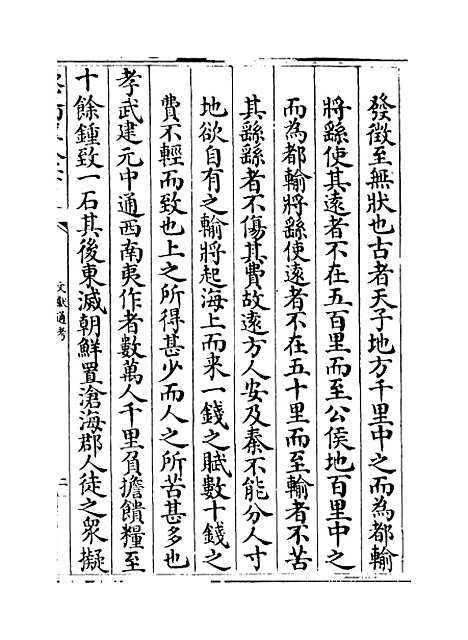 發徴至無狀也古者天子地方千里中之而為都輸
將繇使其逺者不在五百里而至公侯地百里中之
而為都輸將繇使逺者不在五十里而至輸者不苦
其繇繇者不傷其費故逺方人安及秦不能分人寸
地欲自有之輸將起海上而来一錢之賦數十錢之
費不輕而致也上之所得甚少而人之所苦甚多也
孝武建元中通西南夷作者數萬人千里負擔饋糧至
十餘鍾致一石其後東滅朝鮮置滄海郡人徒之衆擬
文獻通考
二